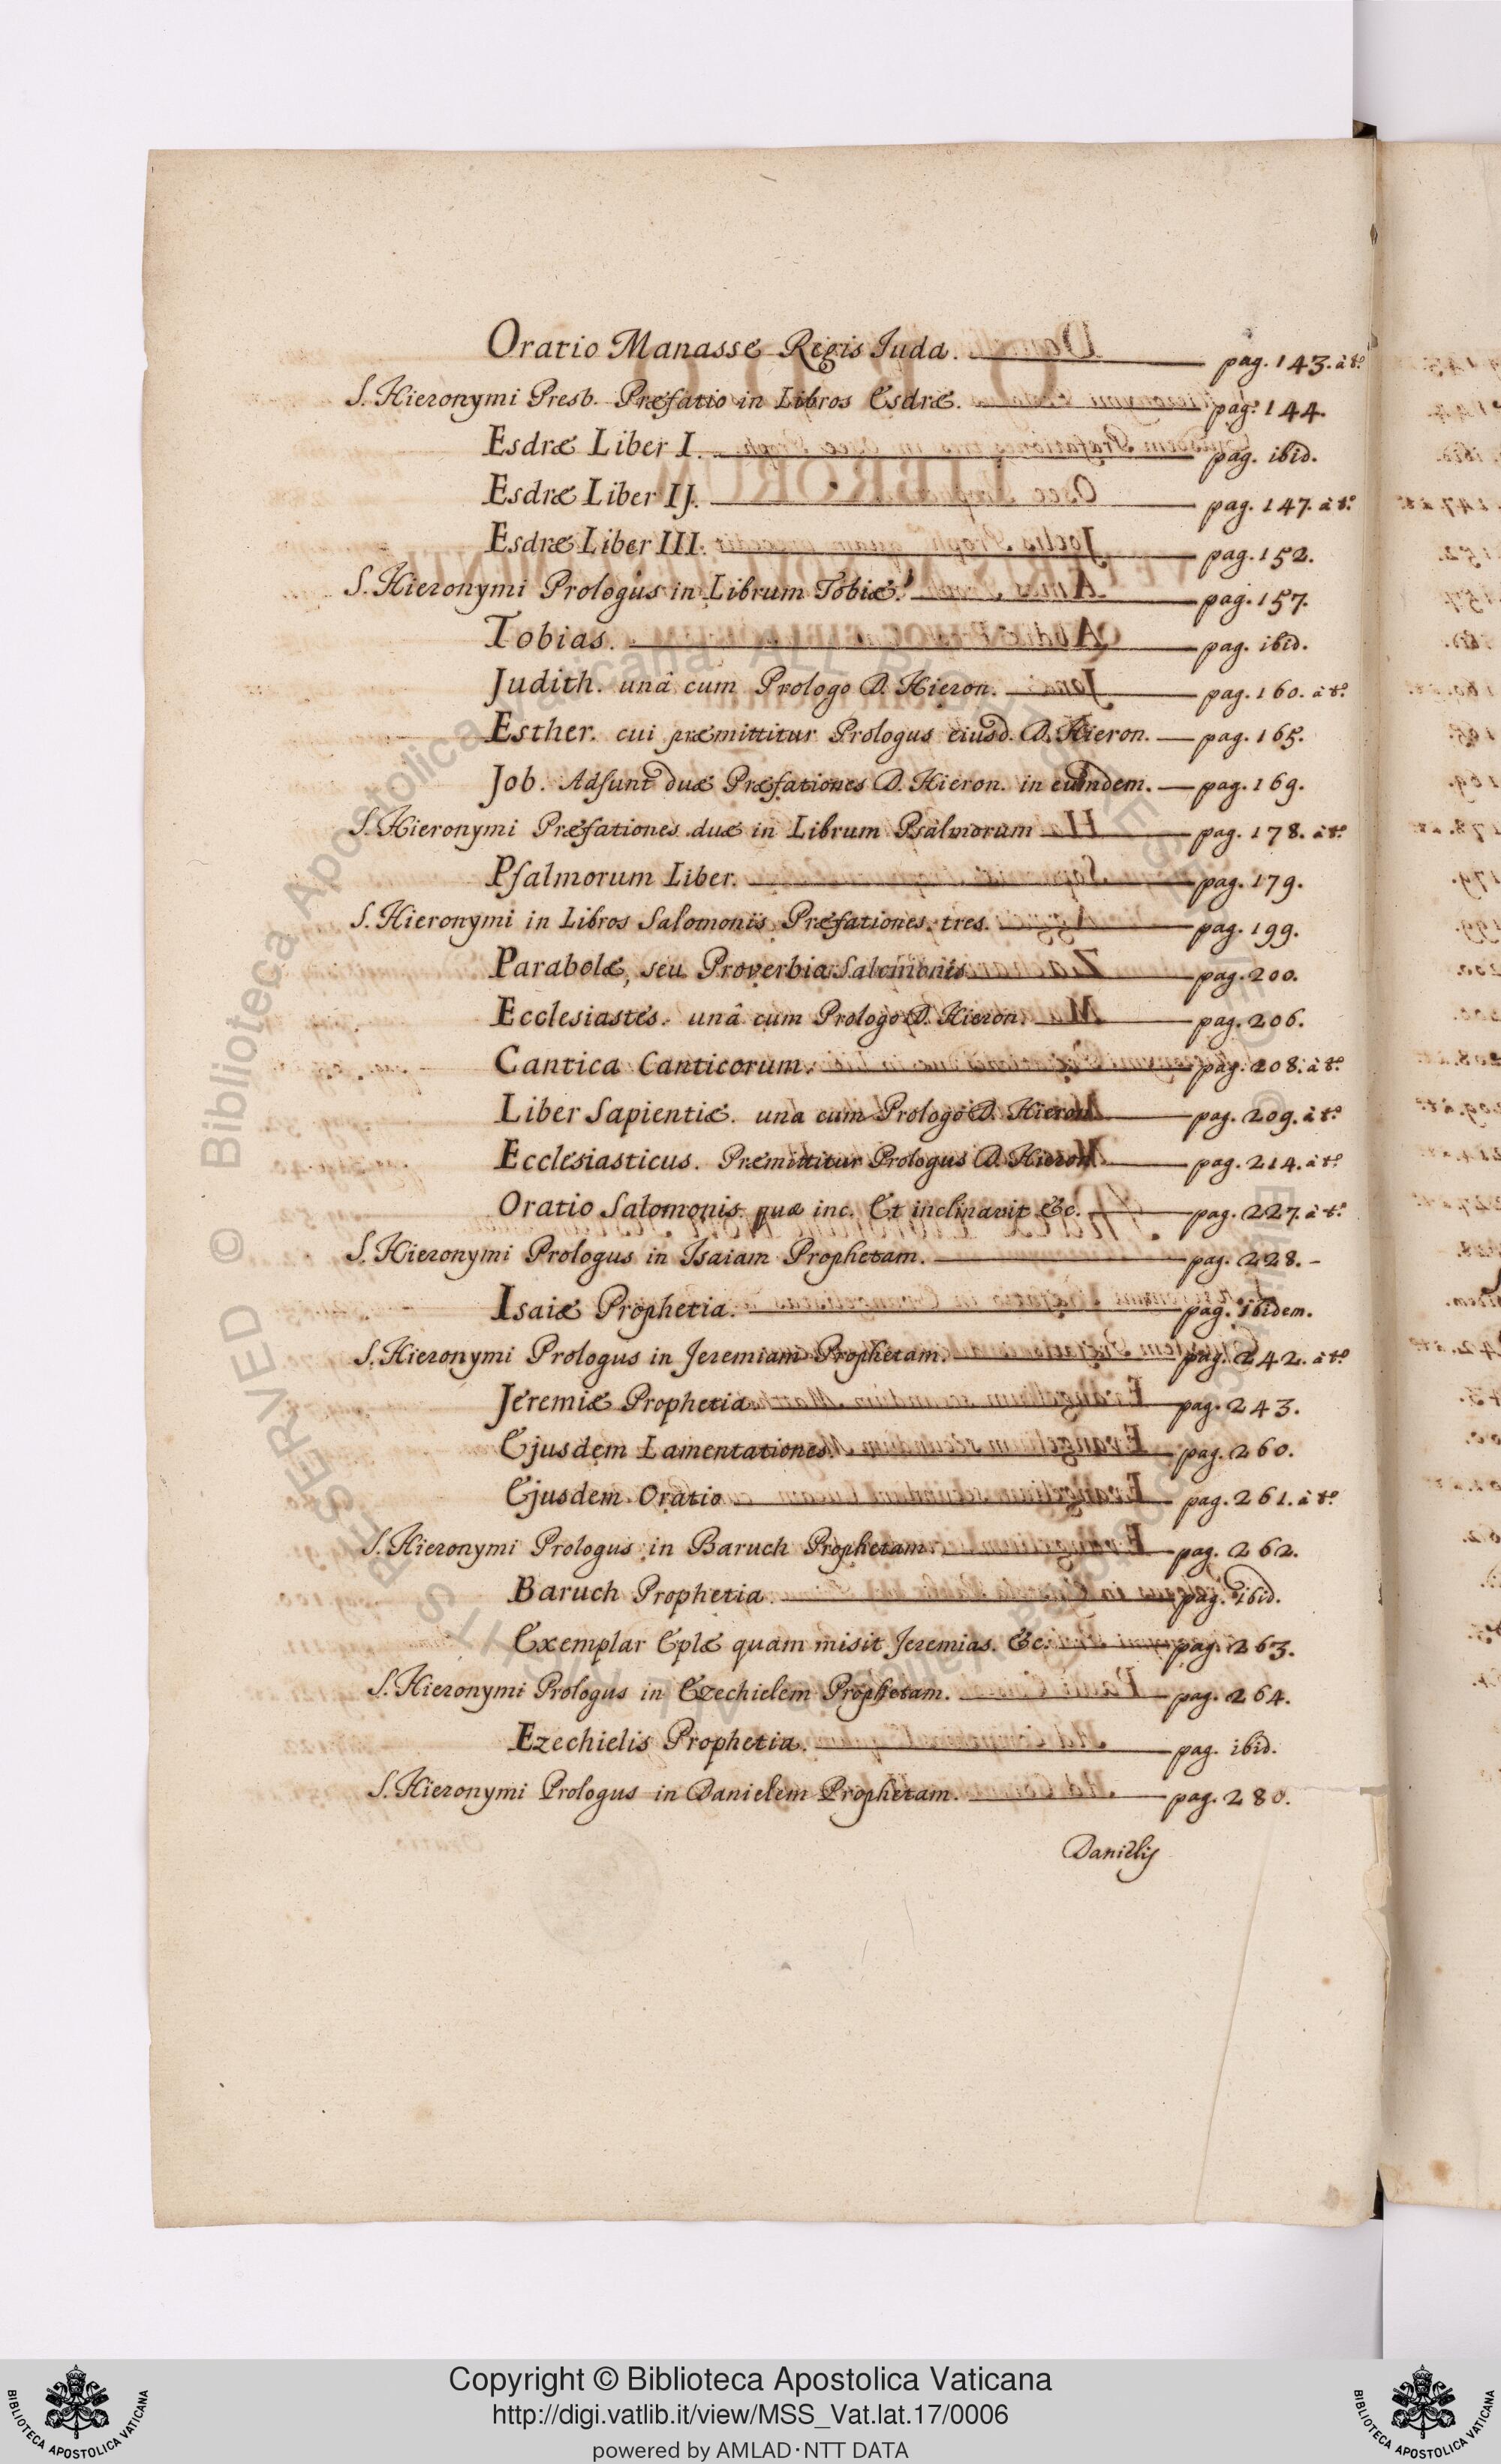 Oratio Manasse Regis Juda. pag. 143. à tº.
S. Hieronymi Presb. Præfatio in Libros Esdræ. pag. 144.
Esdræ Liber I. pag. ibid.
Esdræ Liber IJ. pag. 147. à tº.
Esdræ Liber III. pag. 152.
S. Hieronymi Prologus in Librum Tobiæ. pag. 157.
Tobias. pag. ibid.
Judith. unâ cum Prologo D. Hieron. pag. 160. à tº.
Esther. cui præmittitur Prologus eiusd. D. Hieron. pag. 165.
Job. Adsunt duæ Præfationes D. Hieron. in eumdem. pag. 169.
S. Hieronymi Præfationes duæ in Librum Psalmorum pag. 178. à tº.
Psalmorum Liber. pag. 179.
S. Hieronymi in Libros Salomonis Præfationes tres. pag. 199.
Parabolæ, seu Proverbia Salomonis pag. 200.
Ecclesiastes. unâ cum Prologo D. Hieron. pag. 206.
Cantica Canticorum. pag. 208. à tº.
Liber Sapientiæ. una cum Prologo D. Hieron. pag. 209. à tº.
Ecclesiasticus. Præmittitur Prologus D. Hieron. pag. 214. à tº.
Oratio Salomonis quæ inc. Et inclinavit &c. pag. 227. à tº.
S. Hieronymi Prologus in Isaiam Prophetam. pag. 228. -
Isaiæ Prophetia. pag. ibidem.
S. Hieronymi Prologus in Jeremiam Prophetam. pag. 242. à tº.
Jeremiæ Prophetia. pag. 243.
Ejusdem Lamentationes. pag. 260.
Ejusdem Oratio pag. 261. à tº.
S. Hieronymi Prologus in Baruch Prophetam. pag. 262.
Baruch Prophetia pag. ibid.
Exemplar Eplæ quam misit Jeremias. &c. pag. 263.
S. Hieronymi Prologus in Ezechielem Prophetam. pag. 264.
Ezechielis Prophetia. pag. ibid.
S. Hieronymi Prologus in Danielem Prophetam. pag. 280.
Danielis
Copyright © Biblioteca Apostolica Vaticana
http://digi.vatlib.it/view/MSS_Vat.lat.17/0006
powered by AMLAD·NTT DATA
BIBLIOTECA APOSTOLICA VATICANA
BIBLIOTECA APOSTOLICA VATICANA